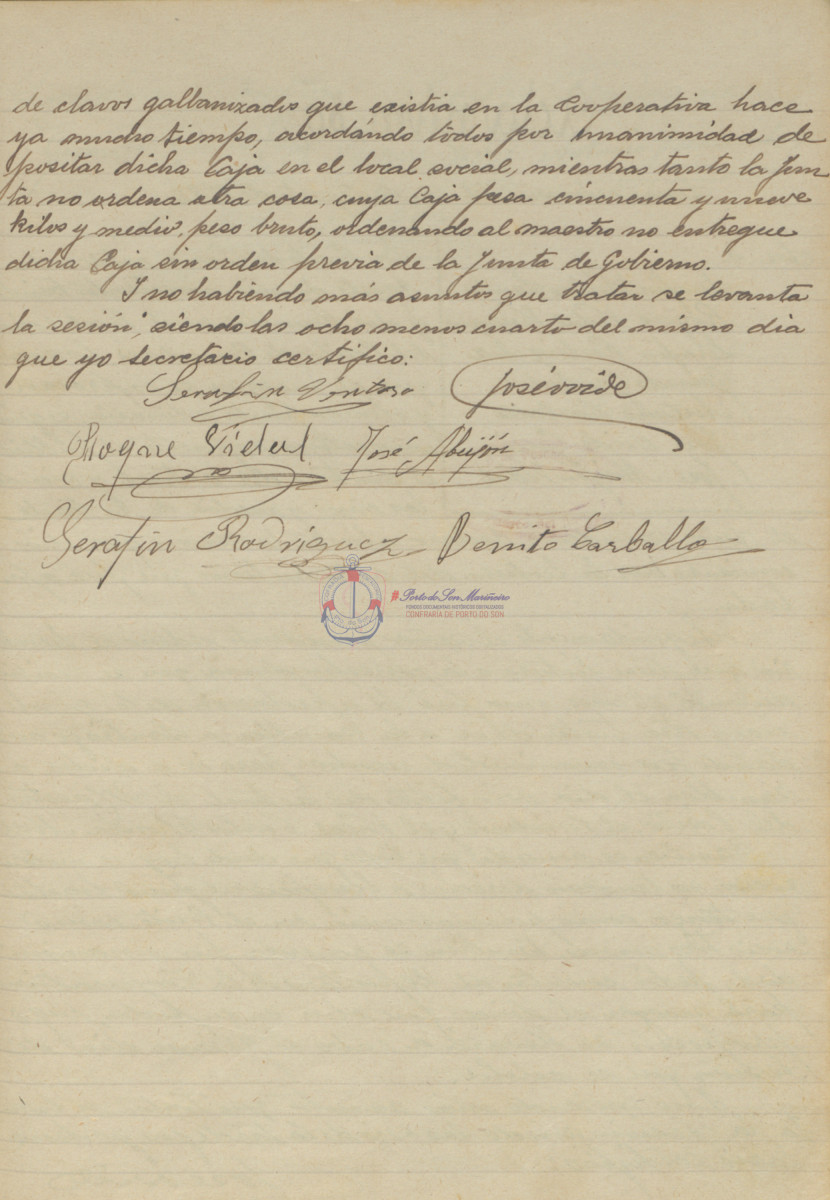 de clavos galbanizados que existia en la Cooperativa hace
ya mucho tiempo, acordándo todos por unanimidad de
positar dicha Caja en el local social, mientras tanto la Jun
ta no ordena otra cosa, cuya Caja pesa cincuenta y nueve
kilos y medio, peso bruto, ordenando al maestro no entregue
dicha Caja sin orden previa de la Junta de Gobierno.
I no habiendo más asuntos que tratar se levanta
la sesión, siendo las ocho menos cuarto del mismo dia
que yo secretario certifico:
Serafín Ventoso José
Roque Vidal José Abuijón
Serafin Rodríguez Benito Carballo
#Porto do Son Mariñeiro
FONDOS DOCUMENTAIS HISTÓRICOS DIXITALIZADOS
CONFRARÍA DE PORTO DO SON